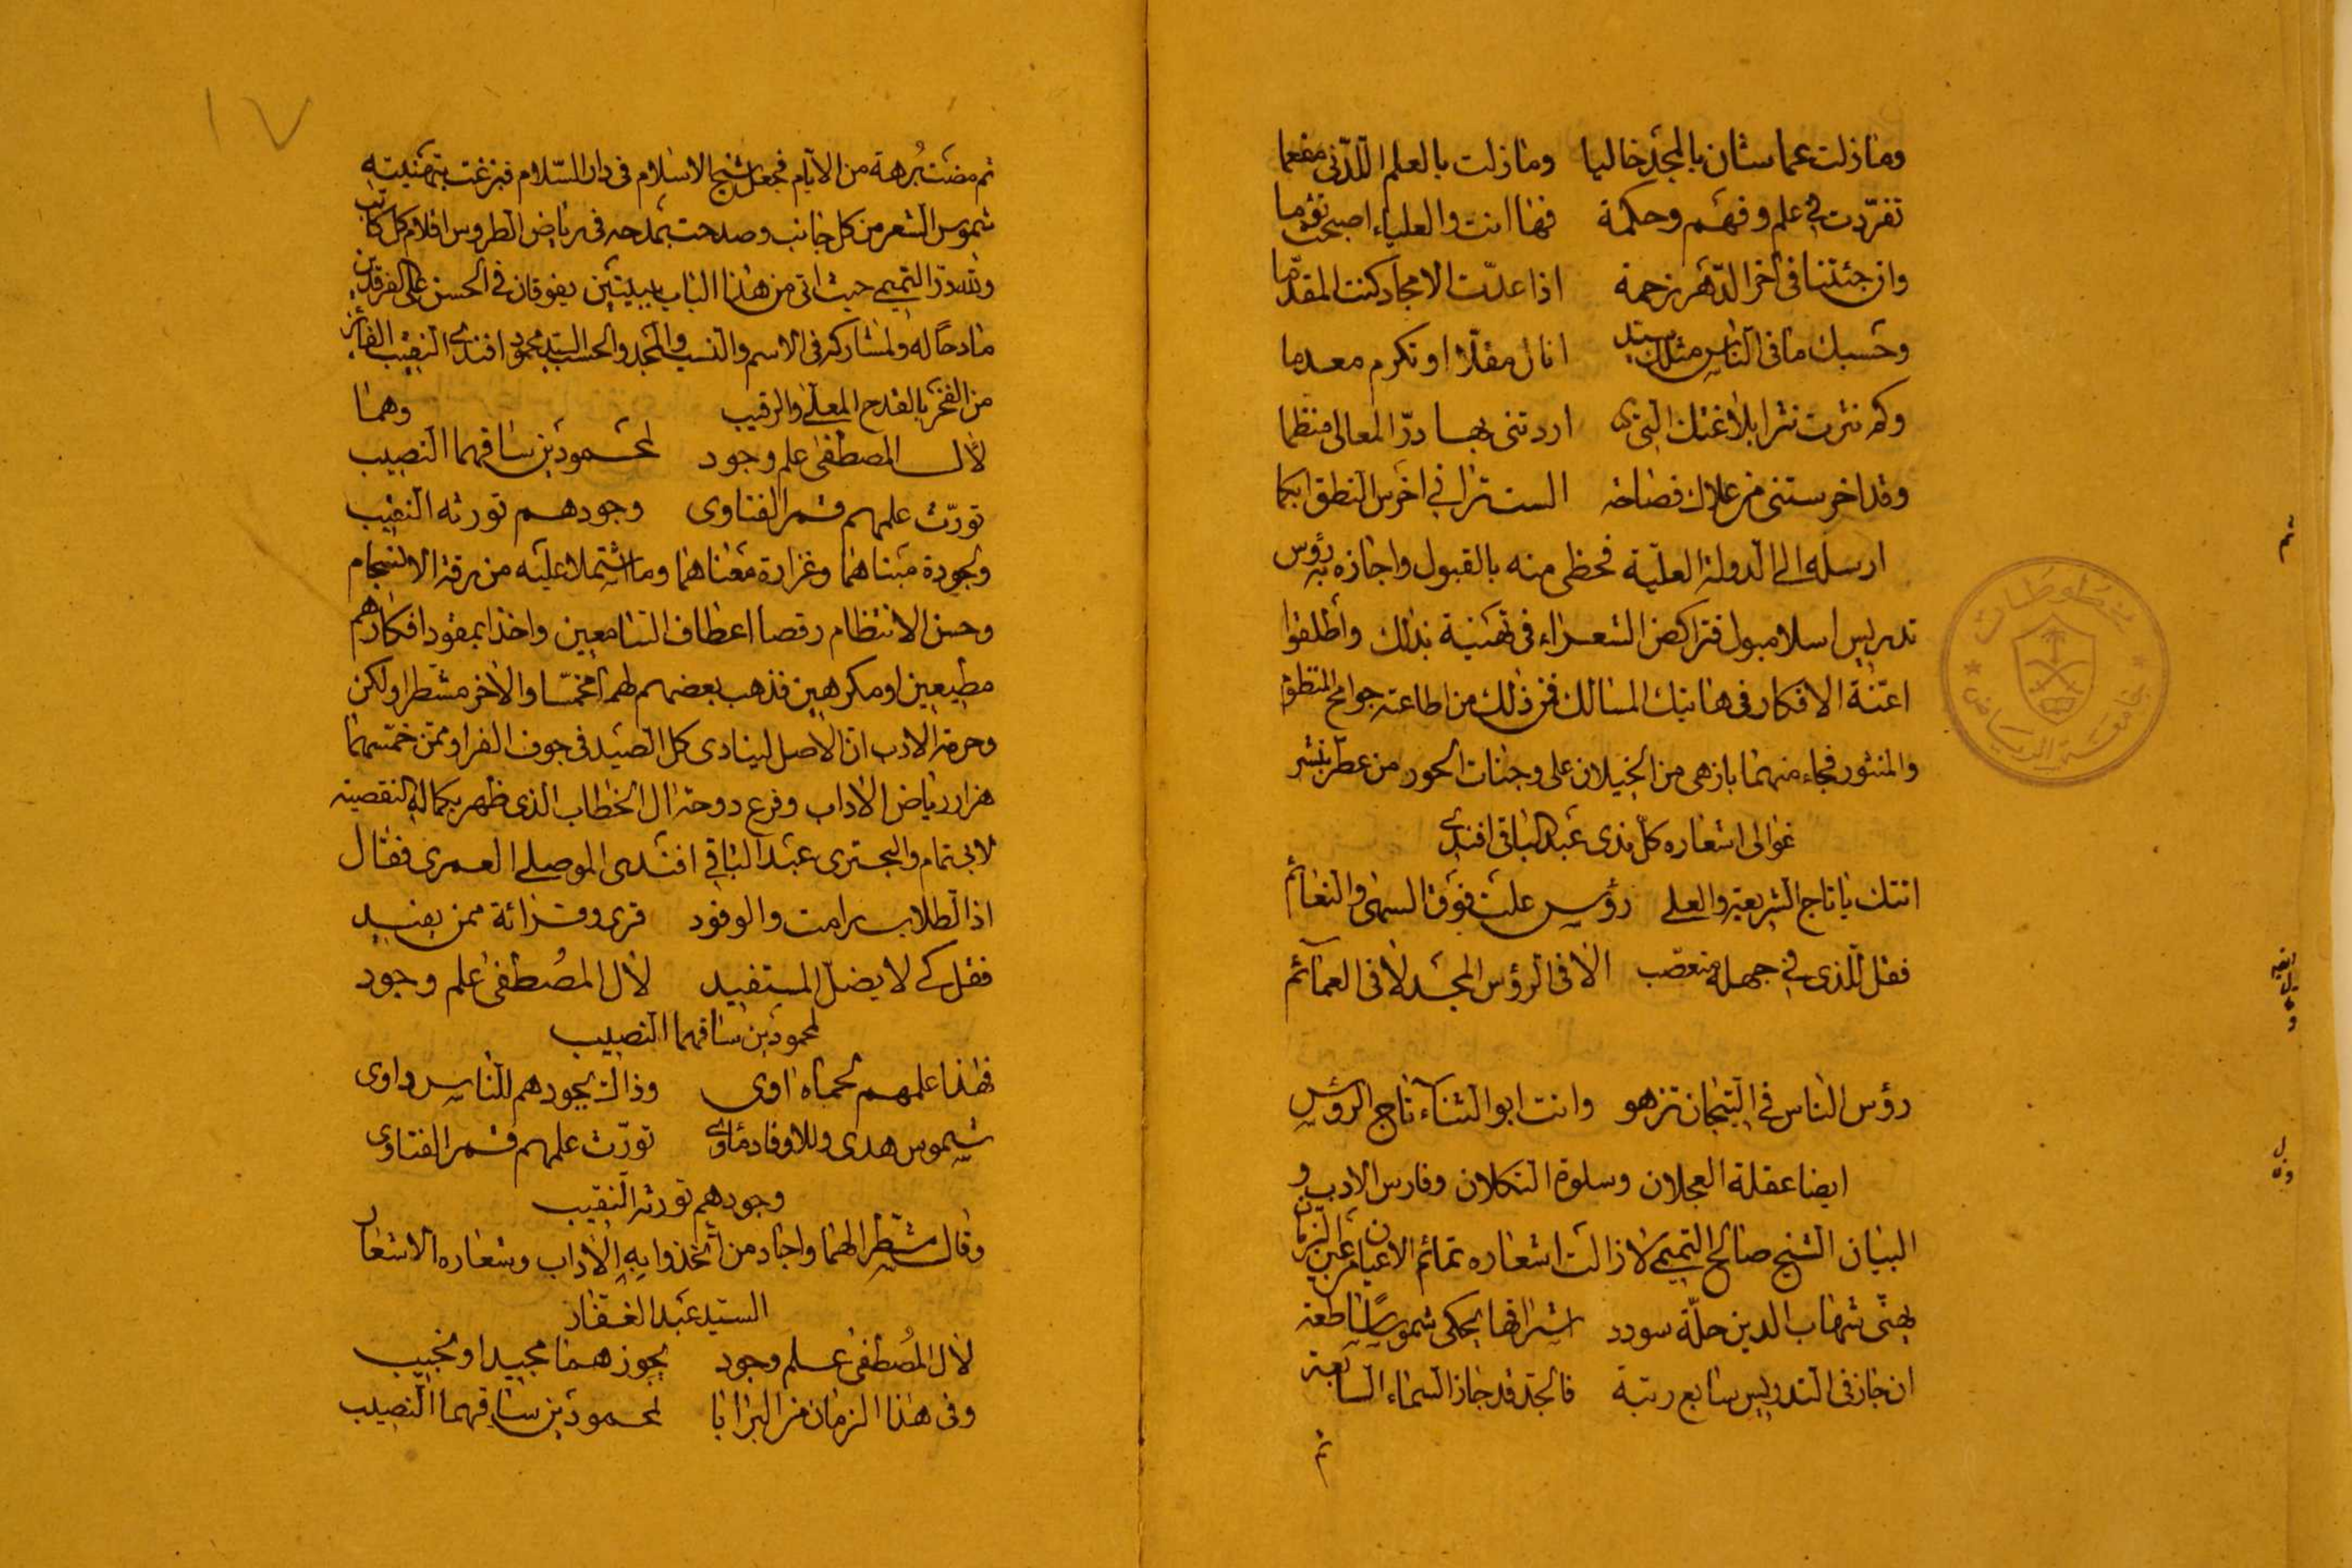 وما زلت عما شان بالمجد خاليا وما زلت بالعلم اللدنى مفعما
تفردت فى علم وفهم وحكمة فها انت والعلياء اصبحت توءما
وان جئتنا فى آخر الدهر رحمة اذا عدت الامجاد كنت المقدما
وحسبك ما فى الناس مثلك سيد انال مقلا او تكرم معدما
وكم نثرت نثرا بلاغتك التى اردتنى بها در المعالى منظما
وقد اخرستنى من علاك فصاحة الست ترانى اخرس النطق ابكما
ارسله الى الدولة العلية فحظى منه بالقبول واجازه به رؤس
تدريس اسلامبول فتراكض الشعراء فى تهنية بذلك واطلقوا
اعنة الافكار فى هاتيك المسالك فمن ذلك من اطاعته جوامح المنظوم
والمنثور فجاء منهما بازهى من الخيلان على وجنات الحور من عطر بنشر
غوالى اشعاره كل ندى عبد الباقى افندى
اتتك يا تاج الشريعة والعلى رؤس علت فوق السهى والنعائم
فقل للذى فى جهله متعصب الا فى الرؤس المجد لا فى العمائم
رؤس الناس فى التيجان تزهو وانت ابو الثناء تاج الرؤس
ايضا عقلة العجلان وسلوة الثكلان وفارس الادب و
البيان الشيخ صالح التميمى لا زالت اشعاره تمائم الاعيان من عين الزمان
يهنى شهاب الدين حلة سودد اشراقها يحكى شموسا ساطعة
ان حاز فى التدريس سابع رتبة فالجد قد حاز السماء السابعة
ثم
١٧
ثم مضت برهة من الايام فجعل شيخ الاسلام فى دار السلام فبزغت بتهنيته
شموس الشعر من كل جانب وصدحت بمدحه فى رياض الطروس اقلام كل كاتب
ولله در التميمى حيث اتى من هذا الباب ببيتين يفوقان فى الحسن على الفرقدين
مادحا له ولمشاركه فى الاسم والنسب والمجد والحسب السيد محمود افندى النقيب الفائز
من الفخر بالقدح المعلى والرقيب وهما
لآل المصطفى علم وجود لمحمودين ساقهما النصيب
تورث علمهم قمر الفتاوى وجودهم تورثه النقيب
ولجودة مبناهما وغزارة معناهما وما اشتملا عليه من رقة الانسجام
وحسن الانتظام رقصا اعطاف السامعين واخذا بمقود افكارهم
مطيعين او مكرهين فذهب بعضهم لهما مخمسا والآخر مشطرا ولكن
وحرمة الادب ان الاصل لينادى كل الصيد فى جوف الفرا وممن خمسهما
هزار رياض الآداب وفرع دوحة آل الخطاب الذى ظهر بكماله النقصية
لابى تمام والبحترى عبد الباقى افندى الموصلى العمرى فقال
اذا الطلاب رامت والوفود قرى وقرائة ممن يفيد
فقل كى لا يضل المستفيد لآل المصطفى علم وجود
لمحمودين ساقهما النصيب
فهذا علمهم لحماه آوى وذاك بجودهم للناس داوى
شموس هدى وللاوفاد مأوى تورث علمهم قمر الفتاوى
وجودهم تورثه النقيب
وقال مشطرا لهما واجاد من اتخذ دابه الآداب وشعاره الاشعار
السيد عبد الغفار
لآل المصطفى علم وجود يجوزهما مجيدا ونجيب
وفى هذا الزمان من البرايا لمحمودين ساقهما النصيب